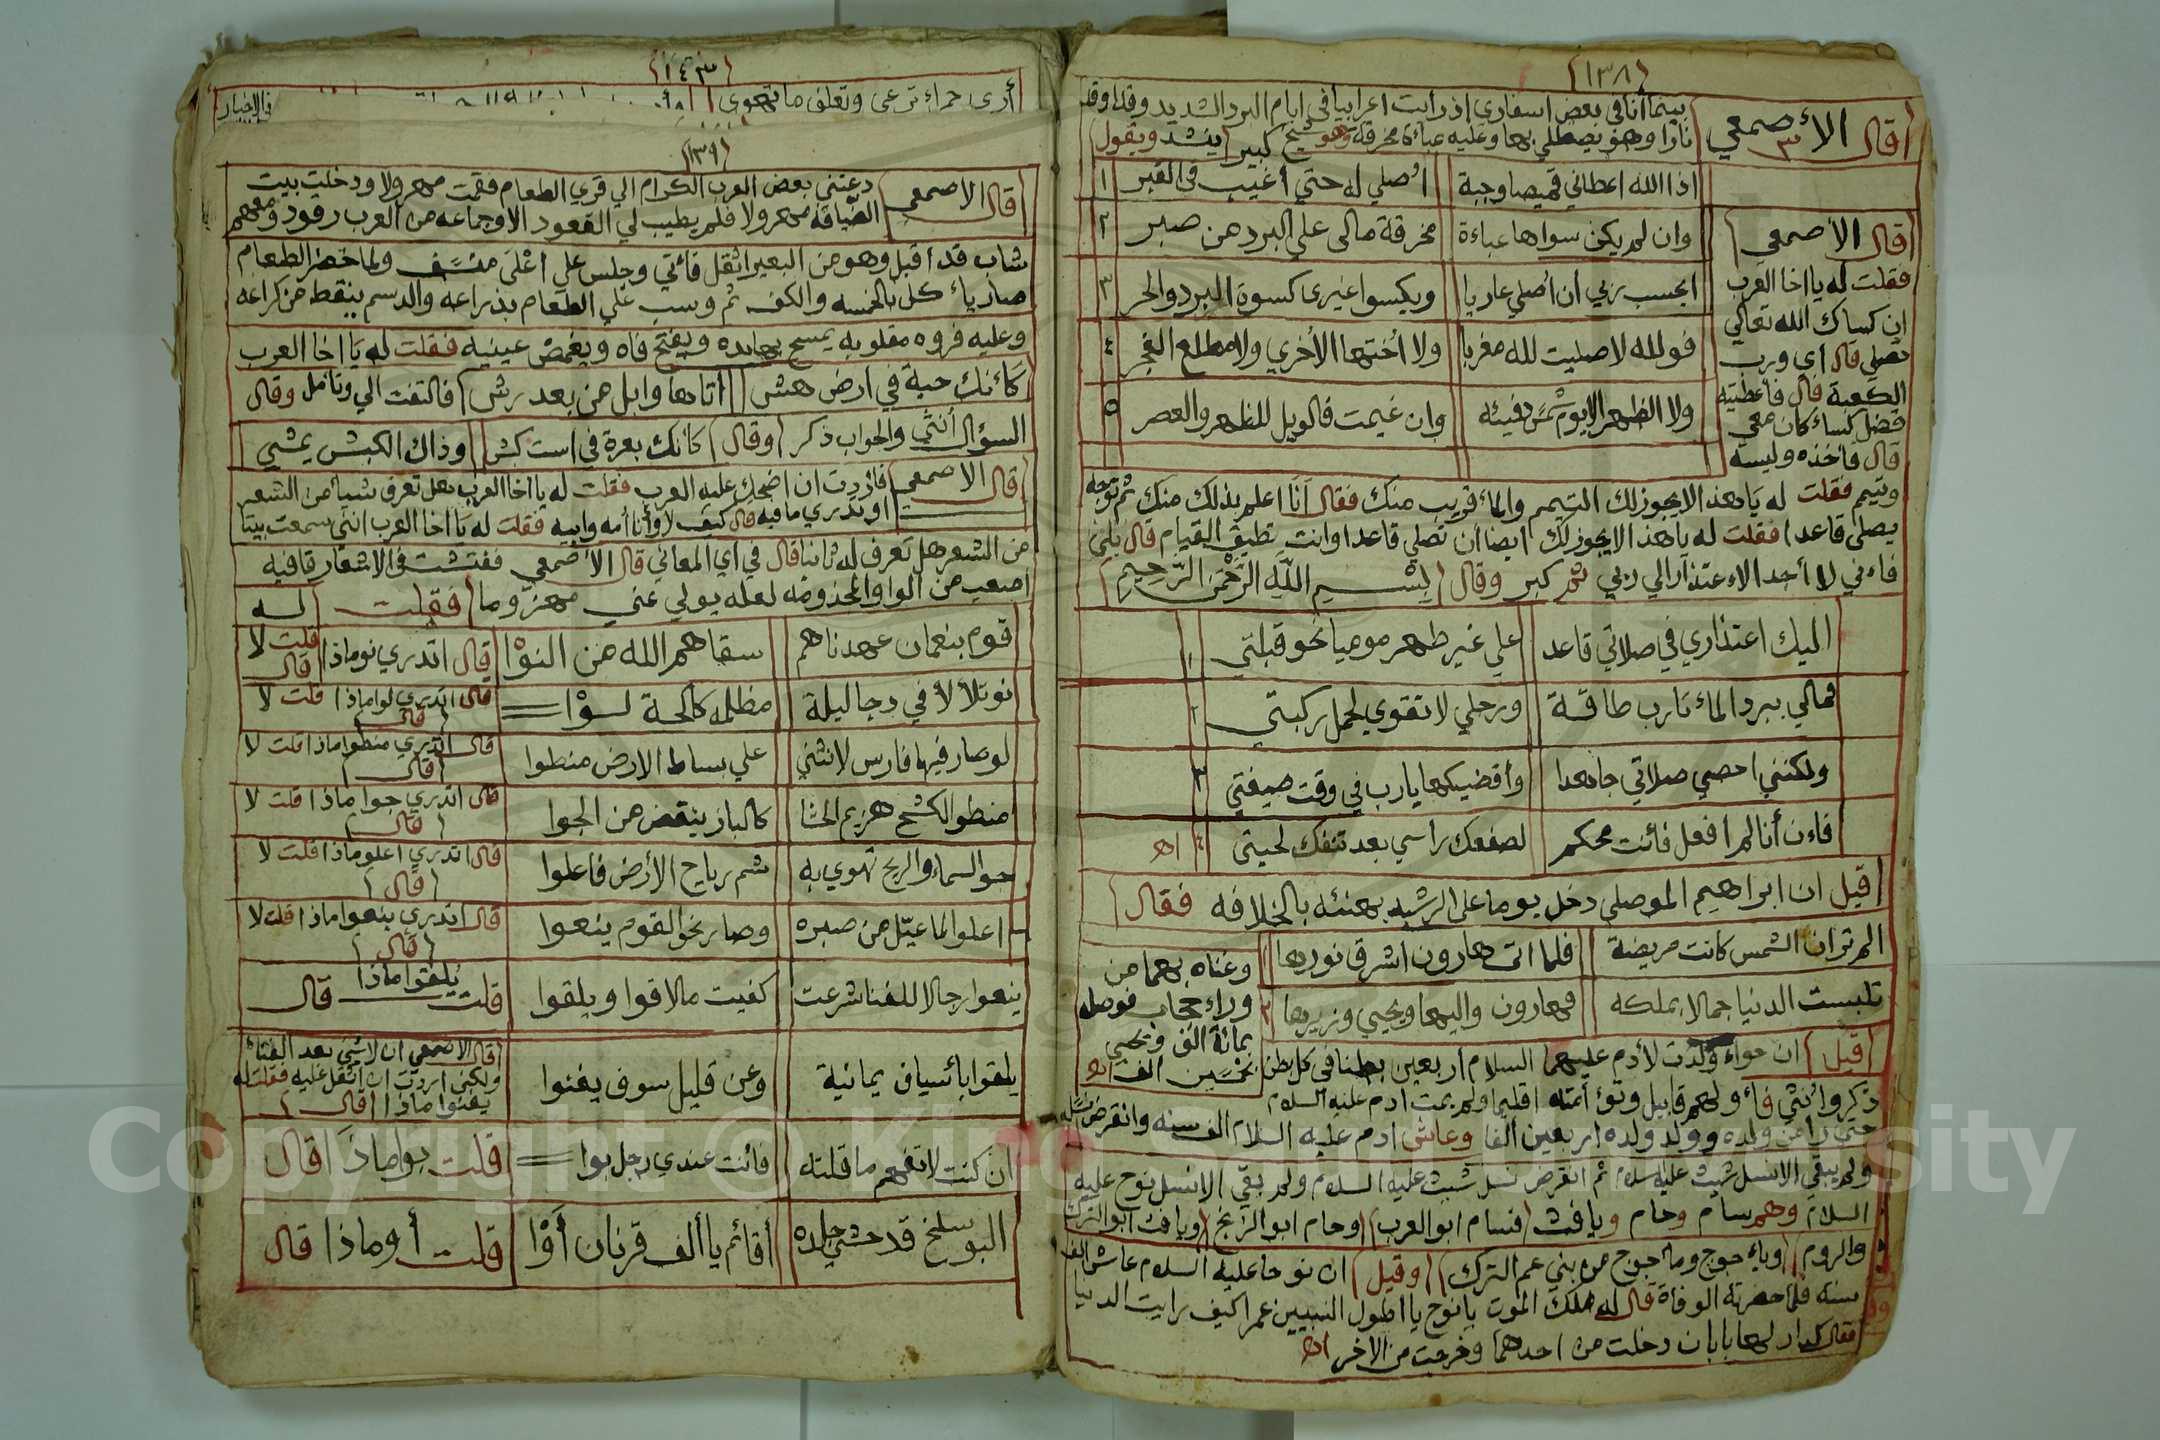 (١٣٨)
قال الأصمعي
بينما أنا في بعض اسفاري اذ رايت اعرابيا في ايام البرد الشديد وقد اوقد
نارا وهو يصطلي بها وعليه عباءة مخرقة وهو شيخ كبير ينشد ويقول
اذا الله اعطاني قميصا وجبة أصلي له حتي أغيب في القبر ١
وان لم يكن سواها عباءة مخرقة مالى علي البرد من صبر ٢
ايحسب ربي أن أصلي عاريا ويكسوا غيرى كسوة البرد والحر ٣
فوالله لا صليت لله مغربا ولا أختها الأخري ولا مطلع الفجر ٤
ولا الظهر الا يوم شمس دفيئه وان غيمت فالويل للظهر والعصر ٥
قال الأصمعي
فقلت له يا اخا العرب
ان كساك الله تعالي
تصلي قال اي ورب
الكعبة قال فأعطيته
فضل كساء كان معي
قال فأخذه ولبسه
وتيمم فقلت له يا هذا لا يجوز لك التيمم والماء قريب منك فقال أنا اعلم بذلك منك ثم توجه
يصلي قاعدا فقلت له يا هذا لا يجوز لك ايضا أن تصلي قاعدا وانت تطيق القيام قال بلي
فاء في لا أجد الاء عتذار الي ربي ثم كبر وقال بسم الله الرحمن الرحيم
اليك اعتذاري في صلاتي قاعد علي غير طهر موميا نحو قبلتي ١
فمالي ببرد الماء يارب طاقة ورجلي لا تقوي لحمل ركبتي ٢
ولكنني احصي صلاتي جاهدا وأقضيكها يارب في وقت صيفتي ٣
فاءن أنا لم افعل فأنت محكم لصفعك راسي بعد نتفك لحيتي ٤ اه
قيل ان ابراهيم الموصلي دخل يوما على الرشيد يهنئه بالخلافه فقال
الم تر ان الشمس كانت مريضة فلما اتى هارون اشرق نورها
تلبست الدنيا جمالا بملكه فهارون واليها ويحيي وزيرها ٢
وغناه بهما من
وراء حجاب فوصله
بمائة الف ويحيي
بخمسين الف اه
قيل ان حواء ولدت لأدم عليهما السلام اربعين بطنا في كل بطن
ذكر وانثي فأولهم قابيل وتوءأمته اقليما ولم يمت ادم عليه السلام
حتي رأ من ولده وولد ولده اربعين ألفا وعاش ادم عليه السلام الف سنه وانقرض نسله
ولم يبقي الا نسل شيث عليه السلام ثم انقرض نسل شيث عليه السلام ولم يبقي الا نسل نوح عليه
السلام وهم سام وحام ويافث فسام ابو العرب وحام ابو الزنج ويافث ابو الترك
والروم وياءجوج وماجوج من بني عم الترك وقيل ان نوحا عليه السلام عاش الف
سنه فلما حضرته الوفاة قال له ملك الموت يا نوح يا اطول النبيين عمرا كيف رايت الدنيا
فقال كدار لها بابان دخلت من احدهما وخرجت من الاخر اه
(١٤٣)
أرى حمراء ترعى وتعلف ما تهوي
في الاخبار
(١٣٩)
قال الاصمعي
دعتني بعض العرب الكرام الي قري الطعام فقمت مهرولا ودخلت بيت
الضيافه مهرولا فلم يطيب لي القعود الا وجماعه من العرب رقود ومعهم
شاب قد أقبل وهو من البعير اثقل فأتي وجلس علي أعلى منسف ولما حضر الطعام
صار ياءكل بالخمسه والكف ثم وسب علي الطعام بذراعه والدسم ينقط من كراعه
وعليه فروه مقلوبه يمسح بها يده ويفتح فاه ويغمض عينيه فقلت له يا اخا العرب
كأنك حبة في ارض هش اتاها وابل من بعد رش فالتفت الي وتأمل وقال
السؤال أنثي والجواب ذكر وقال كانك بعرة في است كبش وذاك الكبش يمشي
قال الاصمعي
فأردت ان اضحك عليه العرب فقلت له يا اخا العرب هل تعرف شيأ من الشعر
او تدري ما فيه قال كيف لا وأنا أمه وابيه فقلت له يا اخا العرب انني سمعت بيتا
من الشعر هل تعرف له ثانيا قال في أي المعاني قال الأصمعي ففتشت في الاشعار قافيه
اصعب من الواو المجذومه لعله يولي عني مهزوما فقلت له
قوم بنعمان عهدناهم سقاهم الله من النوا قال اتدري نو ماذا قلت لا قال
نو تلألأ في دجا ليلة مظلمه كالحة لوا قال اتدري لو ماذا قلت لا قال
لو صار فيها فارس لانثني علي بساط الارض منطوا قال اتدري منطوا ماذا قلت لا قال
منطو الكشح هزيم الحشا كالباز ينقض من الجوا قال اتدري جوا ماذا قلت لا قال
جو السماء والريح تهوي به شم رياح الأرض فاعلوا قال اتدري اعلو ماذا قلت لا قال
اعلوا لما عيل من صبره وصار نحو القوم ينعوا قال اتدري ينعوا ماذا قلت لا قال
ينعوا رجالا للفنا شرعت كفيت ما لاقوا ويلقوا قلت يلقوا ماذا قال
يلقوا بأسياف يمانية وعن قليل سوف يفنوا
قال الاصمعي ان لا شيئ بعد الفناء
ولكني اردت ان اثقل عليه فقلت له
يفنوا ماذا قال
ان كنت لا تفهم ما قلته فأنت عندي رجل بوا قلت بوا ماذا قال
البو سلخ قد حشي جلده أقائم يا ألف قرنان أوا قلت أو ماذا قال
Copyright © King Saud University